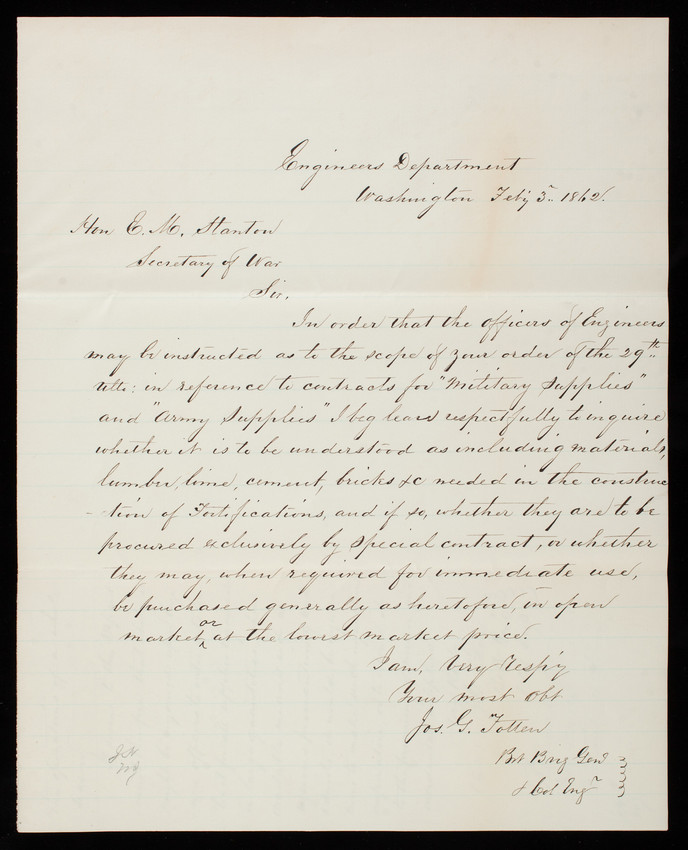 Engineers Department
Washington Feb'y 3d. 1862.
Hon E. M. Stanton
Secretary of War
Sir,
In order that the officers of Engineers
may be instructed as to the scope of your order of the 29th
ulto: in reference to contracts for "Military Supplies"
and "Army Supplies" I beg leave respectfully to inquire
whether it is to be understood as including materials,
lumber, lime, cement, bricks &c needed in the construc
-tion of Fortifications, and if so, whether they are to be
procured exclusively by special contract, or whether
they may, when required for immediate use,
be purchased generally as heretofore, in open
market, or at the lowest market price.
I am, Very Resp'y
Your most Obt
Jos. G. Totten
Bvt Brig Genl
& Col Engr